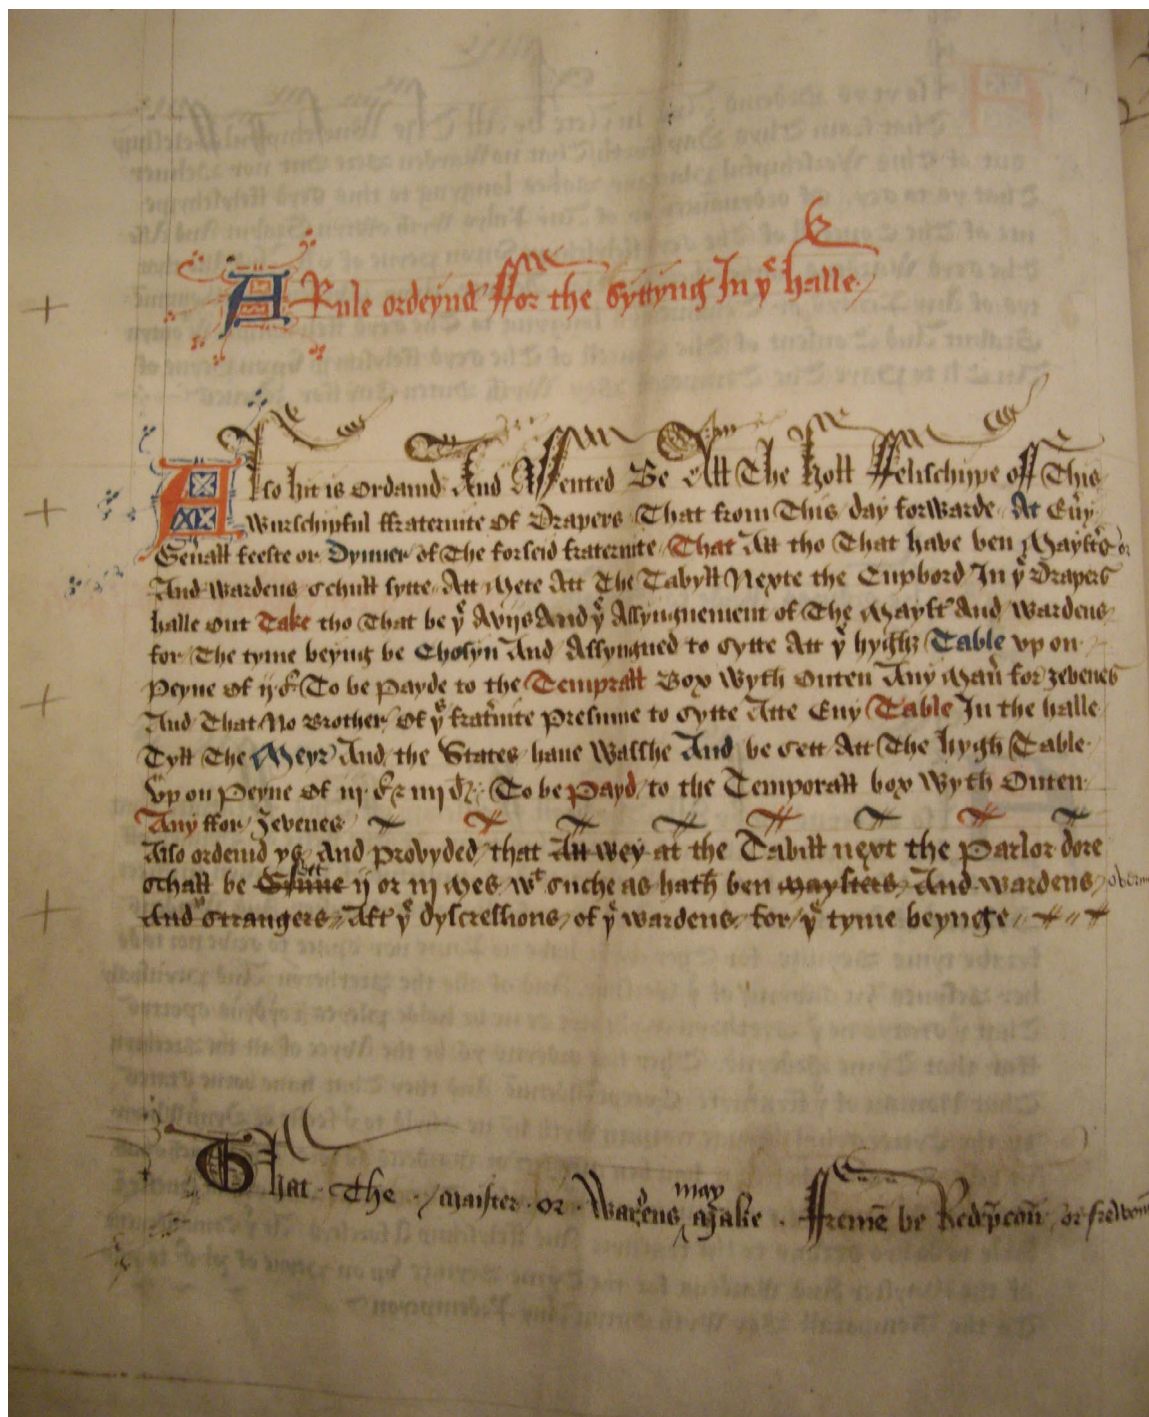 A Rule ordeynd ffor the Syttyng In yͤ halle
Also hit is Ordaind And Assented Be All The Holl ffelischippe off This
Wurschipful ffraternite Of Drapers That from This day forwarde At Eu̾y
Gen̾all feeste or Dynner of The forseid fraternite That All tho That have ben Maystr̾s or
And Wardens Schull sytte Att Mete Att The Tabyll Nexte the Cupbord In yͤ Drapers
halle Out Take tho That be yͤ Avijs And yͤ Assyngnement of The Maystr̾ And Wardens
for The tyme beyng be Chosyn And Assyngned to Sytte Att yͤ hyghe Table up on
Peyne Of To be Payde to the Temprall Box Wyth Outen Any Man̾ forȝevenes
And That No Brother Of yͤ frat̾nite Presume to Sytte Atte Eny Table In the halle
Tyll The Meyr And the States have Wasshe And be Sett Att The hygh Table
Up on Peyne Of iij s iiij d To be Payd to the Temporall box Wyth Outen
Any ffor Ȝevenes
Also ordenid ys And Provyded that All wey at the Tabill next the Parlor dore
Schall be ij or iij Mes wᵗ Suche as hath ben Maysters And Wardens
And Strangers Aft̾ yͤ dyscressions of yͤ wardens for yͤ tyme beynge
may
That The Maister or Wardens make ffremē be Redēpcon̄ or